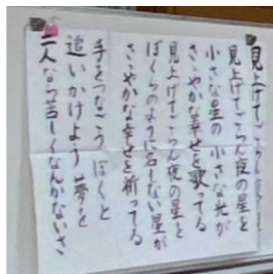 見上げてごらん夜の星を
見上げてごらん夜の星を
小さな星の 小さな光が
ささやかな幸せを歌ってる
見上げてごらん夜の星を
ぼくらのように名もない星が
ささやかな幸せを祈ってる
手をつなごう ぼくと
追いかけよう 夢を
二人なら苦しくなんかないさ